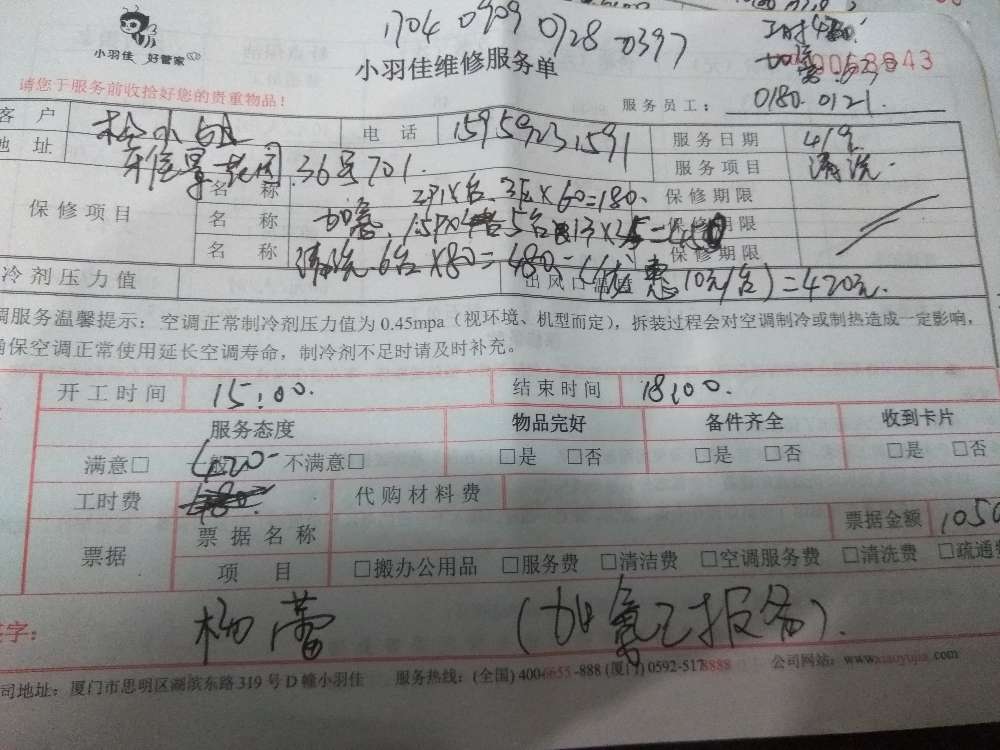 1704 0909 0728 0397
小羽佳 好管家
小羽佳维修服务单
请您于服务前收拾好您的贵重物品！
服务员工： 0180.0121.
客 户 杨小姐 电 话 15959231591 服务日期 4/9
地 址 36号701. 服务项目 清洗.
保修项目 名 称 3匹×60=180. 保修期限
名 称 加氟 1.5P 5台 保修期限
名 称 清洗 6台×80=480- 惠10元/台)=420元. 保修期限
冷剂压力值 出风口温度
调服务温馨提示：空调正常制冷剂压力值为 0.45mpa（视环境、机型而定），拆装过程会对空调制冷或制热造成一定影响，
确保空调正常使用延长空调寿命，制冷剂不足时请及时补充。
开工时间 15:00. 结束时间 18:00.
服务态度 物品完好 备件齐全 收到卡片
满意□ 一般□ 不满意□ □是 □否 □是 □否 □是 □否
420-
工时费 代购材料费
票据 票据名称 票据金额 1050
项 目 □搬办公用品 □服务费 □清洁费 □空调服务费 □清洗费 □疏通费
签字： 杨蕾 (加氟已报备).
司地址：厦门市思明区湖滨东路 319 号 D 幢小羽佳 服务热线：(全国) 4006655-888 (厦门) 0592-5178888 公司网站：www.xiaoyujia.com